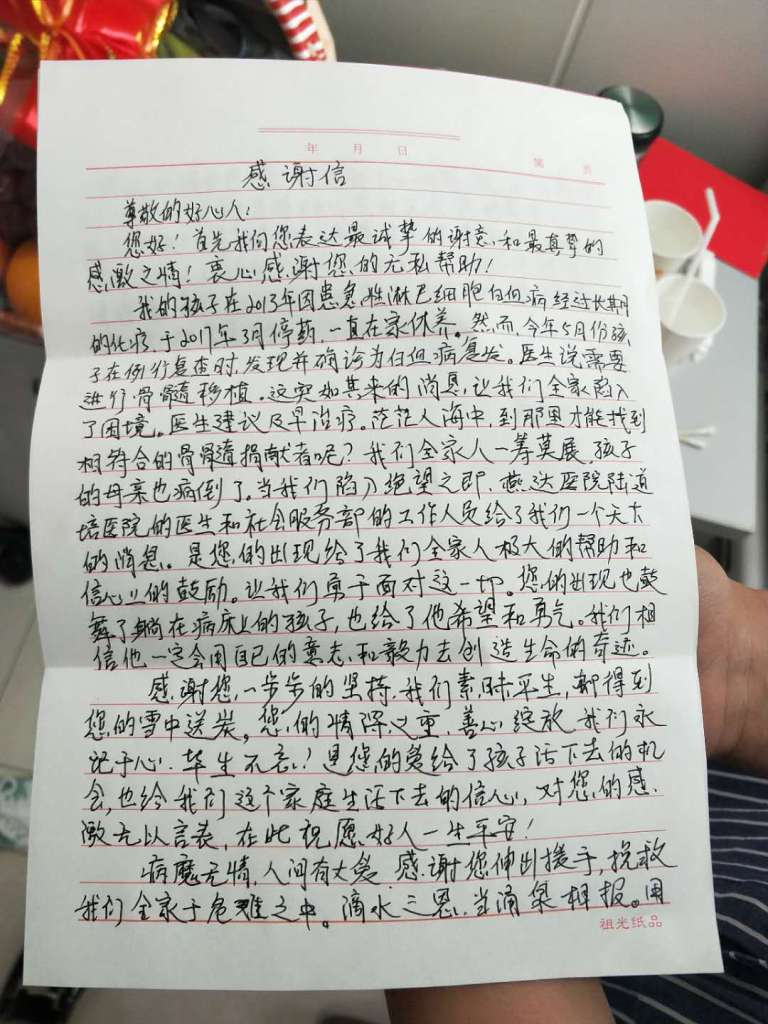 年 月 日
第 页
感谢信
尊敬的好心人：
您好！首先我们向您表达最诚挚的谢意和最真挚的
感激之情！衷心感谢您的无私帮助！
我的孩子在2013年因患急性淋巴细胞白血病经过长期
的化疗，于2017年3月停药，一直在家休养。然而，今年5月份孩
子在例行复查时，发现并确诊为白血病复发。医生说需要
进行骨髓移植。这突如其来的消息，让我们全家陷入
了困境。医生建议及早治疗。茫茫人海中，到那里才能找到
相符合的骨髓捐献者呢？我们全家人一筹莫展，孩子
的母亲也病到了。当我们陷入绝望之即，燕达医院陆道
培医院的医生和社会服务部的工作人员给了我们一个天大
的消息。是您的出现给了我们全家人极大的帮助和
信心上的鼓励。让我们勇于面对这一切。您的出现也鼓
舞了躺在病床上的孩子，也给了他希望和勇气。我们相
信他一定会用自己的意志和毅力去创造生命的奇迹。
感谢您，一步步的坚持，我们素昧平生，却得到
您的雪中送炭。您的情深义重，善心绽放，我们永
记于心，毕生不忘！是您的爱给了孩子活下去的机
会，也给我们这个家庭生活下去的信心，对您的感
激无以言表，在此祝愿好人一生平安！
病魔无情，人间有大爱 感谢您伸出援手，挽救
我们全家于危难之中。滴水三恩，当涌泉相报。用
祖光纸品